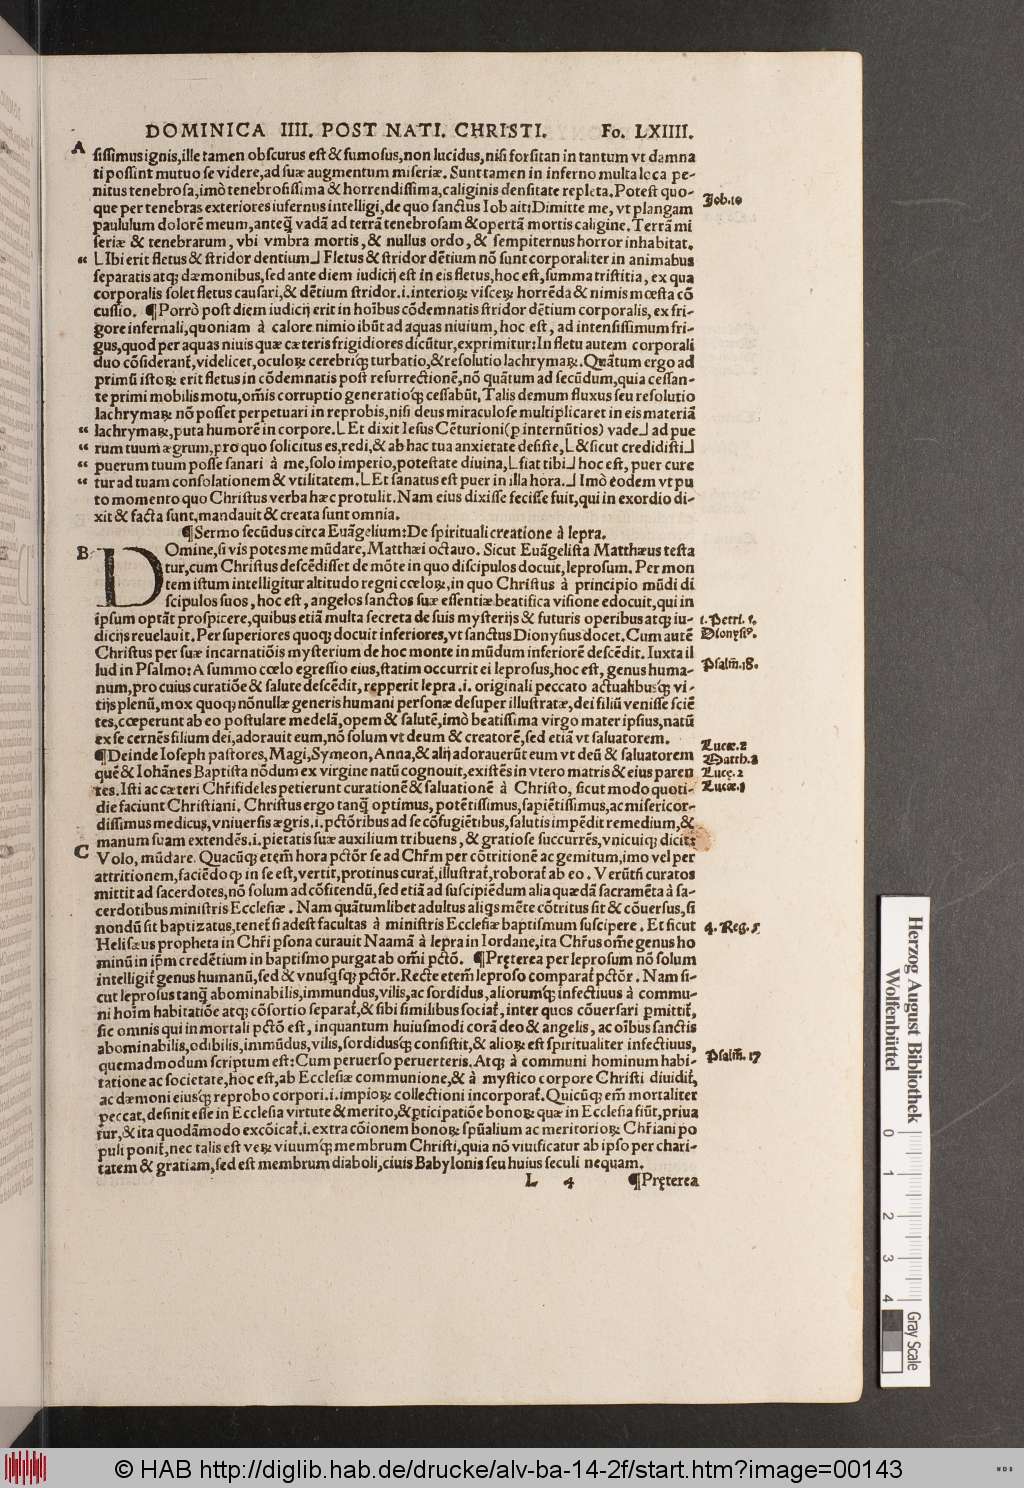 DOMINICA IIII. POST NATI. CHRISTI. Fo. LXIIII.
A
ſiſſimus ignis, ille tamen obſcurus eſt & fumoſus, non lucidus, niſi forſitan in tantum vt damna
ti poſſint mutuo ſe videre, ad ſuæ augmentum miſeriæ. Sunt tamen in inferno multa loca pe-
nitus tenebroſa, imò tenebroſiſſima & horrendiſſima, caliginis denſitate repleta. Poteſt quo-
que per tenebras exteriores iufernus intelligi, de quo ſanctus Iob ait: Dimitte me, vt plangam
Job. 10
paululum dolorē meum, anteq̃ vadā ad terrā tenebroſam & opertā mortis caligine. Terrā mi
ſeriæ & tenebrarum, vbi vmbra mortis, & nullus ordo, & ſempiternus horror inhabitat.
“ ⌊Ibi erit fletus & ſtridor dentium⌋ Fletus & ſtridor dētium nō ſunt corporaliter in animabus
ſeparatis atq; dæmonibus, ſed ante diem iudicij eſt in eis fletus, hoc eſt, ſumma triſtitia, ex qua
corporalis ſolet fletus cauſari, & dētium ſtridor .i. interioꝝ viſceꝝ horrēda & nimis mœſta cō
cuſſio. ¶Porrò poſt diem iudicij erit in hoībus cōdemnatis ſtridor dētium corporalis, ex fri-
gore infernali, quoniam à calore nimio ibūt ad aquas niuium, hoc eſt, ad intenſiſſimum fri-
gus, quod per aquas niuis quæ cæteris frigidiores dicūtur, exprimitur: In fletu autem corporali
duo cōſiderant̃, videlicet, oculoꝝ cerebriq; turbatio, & reſolutio lachrymaꝝ. Quātum ergo ad
primū iſtoꝝ erit fletus in cōdemnatis poſt reſurrectionē, nō quātum ad ſecūdum, quia ceſſan-
te primi mobilis motu, om̄is corruptio generatioq; ceſſabūt. Talis demum fluxus ſeu reſolutio
lachrymaꝝ nō poſſet perpetuari in reprobis, niſi deus miraculoſe multiplicaret in eis materiā
“ lachrymaꝝ, puta humorē in corpore. ⌊Et dixit Ieſus Cēturioni (ꝑ internūtios) vade⌋ ad pue
“ rum tuum ægrum, pro quo ſolicitus es, redi, & ab hac tua anxietate deſiſte, ⌊& ſicut credidiſti⌋
“ puerum tuum poſſe ſanari à me, ſolo imperio, poteſtate diuina, ⌊fiat tibi⌋ hoc eſt, puer cure
“ tur ad tuam conſolationem & vtilitatem. ⌊Et ſanatus eſt puer in illa hora.⌋ Imò eodem vt pu
to momento quo Chriſtus verba hæc protulit. Nam eius dixiſſe feciſſe fuit, qui in exordio di-
xit & facta ſunt, mandauit & creata ſunt omnia.
¶Sermo ſecūdus circa Euāgelium: De ſpirituali creatione à lepra.
B
DOmine, ſi vis potes me mūdare, Matthæi octauo. Sicut Euāgeliſta Matthæus teſta
tur, cum Chriſtus deſcēdiſſet de mōte in quo diſcipulos docuit, leproſum. Per mon
tem iſtum intelligitur altitudo regni cœloꝝ, in quo Chriſtus à principio mūdi di
ſcipulos ſuos, hoc eſt, angelos ſanctos ſuæ eſſentiæ beatifica viſione edocuit, qui in
ipſum optāt proſpicere, quibus etiā multa ſecreta de ſuis myſterijs & futuris operibus atq; iu-
1. Petri. 1.
dicijs reuelauit. Per ſuperiores quoq; docuit inferiores, vt ſanctus Dionyſius docet. Cum autē
Dionyſi⁹.
Chriſtus per ſuæ incarnatiōis myſterium de hoc monte in mūdum inferiorē deſcēdit. Iuxta il
lud in Pſalmo: A ſummo cœlo egreſſio eius, ſtatim occurrit ei leproſus, hoc eſt, genus huma-
Pſalm̄. 18.
num, pro cuius curatiōe & ſalute deſcēdit, repperit lepra .i. originali peccato actualibusq; vi-
tijs plenū, mox quoq; nōnullæ generis humani perſonæ deſuper illuſtratæ, dei filiū veniſſe ſciē
tes, cœperunt ab eo poſtulare medelā, opem & ſalutē, imò beatiſſima virgo mater ipſius, natū
ex ſe cernēs filium dei, adorauit eum, nō ſolum vt deum & creatorē, ſed etiā vt ſaluatorem.
Lucæ. 2
¶Deinde Ioſeph paſtores, Magi, Symeon, Anna, & alij adorauerūt eum vt deū & ſaluatorem
Matth. 2
quē & Iohānes Baptiſta nōdum ex virgine natū cognouit, exiſtēs in vtero matris & eius paren
Lucę. 2
tes. Iſti ac cæteri Chr̄ifideles petierunt curationē & ſaluationē à Chriſto, ſicut modo quoti-
Lucæ. 1
die faciunt Chriſtiani. Chriſtus ergo tanq̃ optimus, potētiſſimus, ſapiētiſſimus, ac miſericor-
diſſimus medicus, vniuerſis ægris .i. pctōribus ad ſe cōfugiētibus, ſalutis impēdit remedium, &
manum ſuam extendēs .i. pietatis ſuæ auxilium tribuens, & gratioſe ſuccurrēs, vnicuiq; dicit:
C
Volo, mūdare. Quacūq; etem̄ hora pctōr ſe ad Chr̄m per cōtritionē ac gemitum, imo vel per
attritionem, faciēdo q; in ſe eſt, vertit, protinus curat̃, illuſtrat̃, roborat̃ ab eo. Verūtn̄ curatos
mittit ad ſacerdotes, nō ſolum ad cōfitendū, ſed etiā ad ſuſcipiēdum alia quædā ſacramēta à ſa-
cerdotibus miniſtris Eccleſiæ. Nam quātumlibet adultus aliq̇s mēte cōtritus ſit & cōuerſus, ſi
nondū ſit baptizatus, tenet̃ ſi adeſt facultas à miniſtris Eccleſiæ baptiſmum ſuſcipere. Et ſicut
4. Reg. 5
Heliſæus propheta in Chr̄i ꝑſona curauit Naamā à lepra in Iordane, ita Chr̄us om̄e genus ho
minū in ip̄m credētium in baptiſmo purgat ab om̄i pctō. ¶Pręterea per leproſum nō ſolum
intelligit̃ genus humanū, ſed & vnuſq̇ſq; pctōr. Recte etem̄ leproſo comparat̃ pctōr. Nam ſi-
cut leproſus tanq̃ abominabilis, immundus, vilis, ac ſordidus, aliorumq; infectiuus à commu-
ni hoīm habitatiōe atq; cōſortio ſeparat̃, & ſibi ſimilibus ſociat̃, inter quos cōuerſari ꝑmittit̃,
ſic omnis qui in mortali pctō eſt, inquantum huiuſmodi corā deo & angelis, ac oībus ſanctis
abominabilis, odibilis, immūdus, vilis, ſordiduſq; conſiſtit, & alioꝝ eſt ſpiritualiter infectiuus,
quemadmodum ſcriptum eſt: Cum peruerſo peruerteris. Atq; à communi hominum habi-
Pſalm̄. 17
tatione ac ſocietate, hoc eſt, ab Eccleſiæ communione, & à myſtico corpore Chriſti diuidit̃,
ac dæmoni eiusq; reprobo corpori .i. impioꝝ collectioni incorporat̃. Quicūq; em̄ mortaliter
peccat, definit eſſe in Eccleſia virtute & merito, & ꝑticipatiōe bonoꝝ quæ in Eccleſia fiūt, priua
tur, & ita quodāmodo excōicat̃ .i. extra cōionem bonoꝝ ſpūalium ac meritorioꝝ Chr̄iani po
puli ponit̃, nec talis eſt veꝝ viuumq; membrum Chriſti, quia nō viuificatur ab ipſo per chari-
tatem & gratiam, ſed eſt membrum diaboli, ciuis Babylonis ſeu huius ſeculi nequam.
L 4 ¶Pręterea
Herzog August Bibliothek
Wolfenbüttel
0 1 2 3 4
Gray Scale
© HAB http://diglib.hab.de/drucke/alv-ba-14-2f/start.htm?image=00143